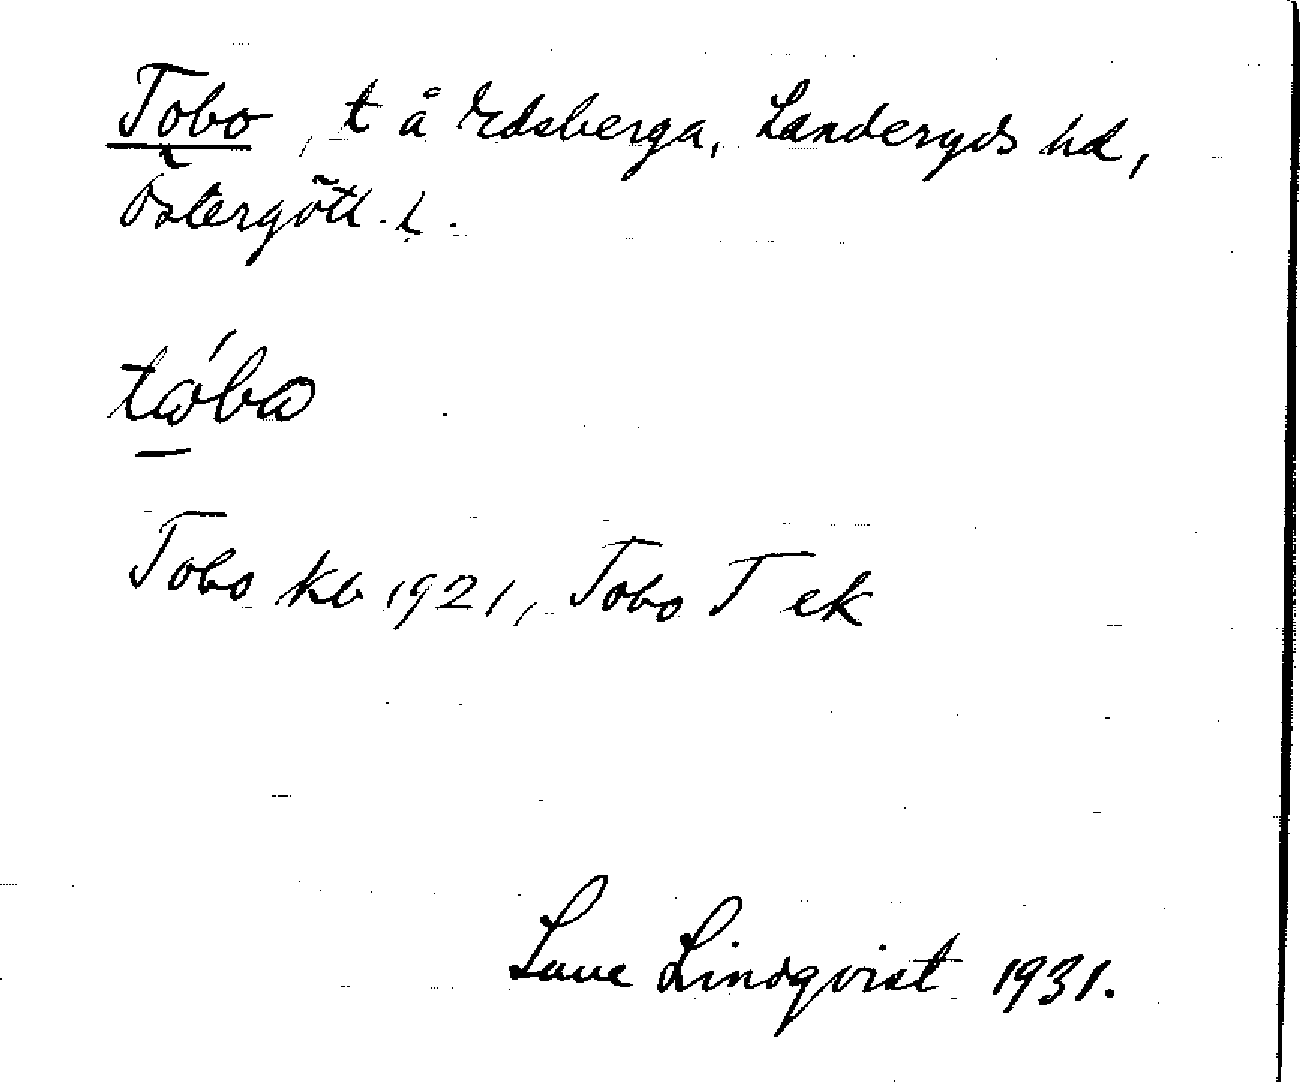 Tobo, t å Edsberga, Landeryds hd,
Östergötl. l.
tóbo
Tobo kb 1921, Tobo T ek
Sune Lindqvist 1931.